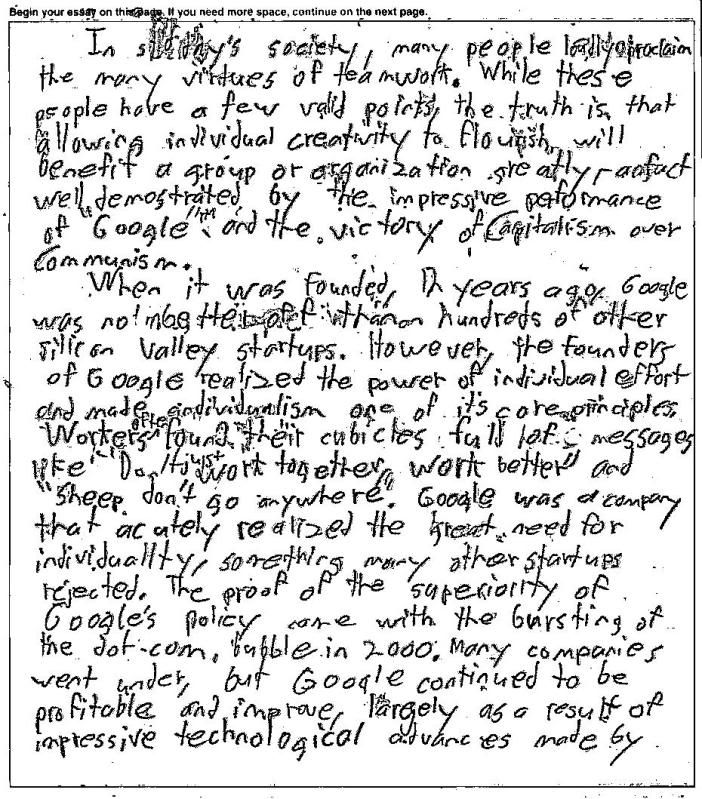 Begin your essay on this page. If you need more space, continue on the next page.
In today's society, many people loudly proclaim
the many virtues of teamwork. While these
people have a few valid points, the truth is that
allowing individual creativity to flourish will
benefit a group or organization greatly, a fact
well demostrated by the impressive peformance
of "Google" and the victory of Capitalism over
Communism.
When it was founded, 12 years ago, Google
was no better off than hundreds of other
silicon Valley startups. However, the founders
of Google realized the power of individual effort
and made individualism one of it's core principles.
Workers often found their cubicles full of messages
like "Don't just work together, work better" and
"Sheep don't go anywhere." Google was a company
that acutely realized the great need for
individuality, something many other startups
rejected. The proof of the superiority of
Google's policy came with the bursting of
the dot-com bubble in 2000. Many companies
went under, but Google continued to be
profitable and improve, largely as a result of
impressive technological advances made by